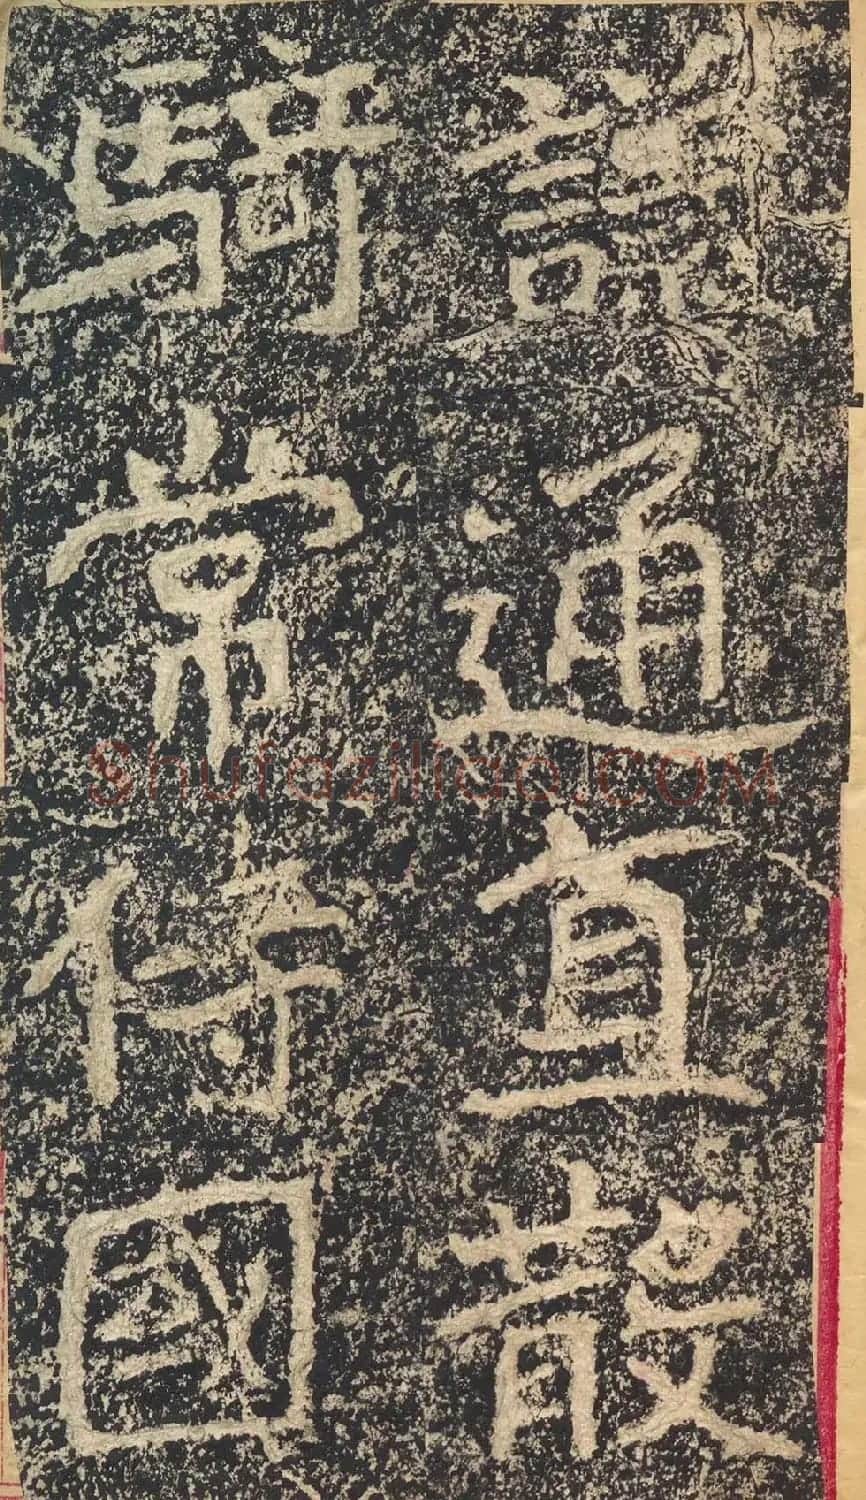 議通直散
騎常侍國
Shufaziliao.COM